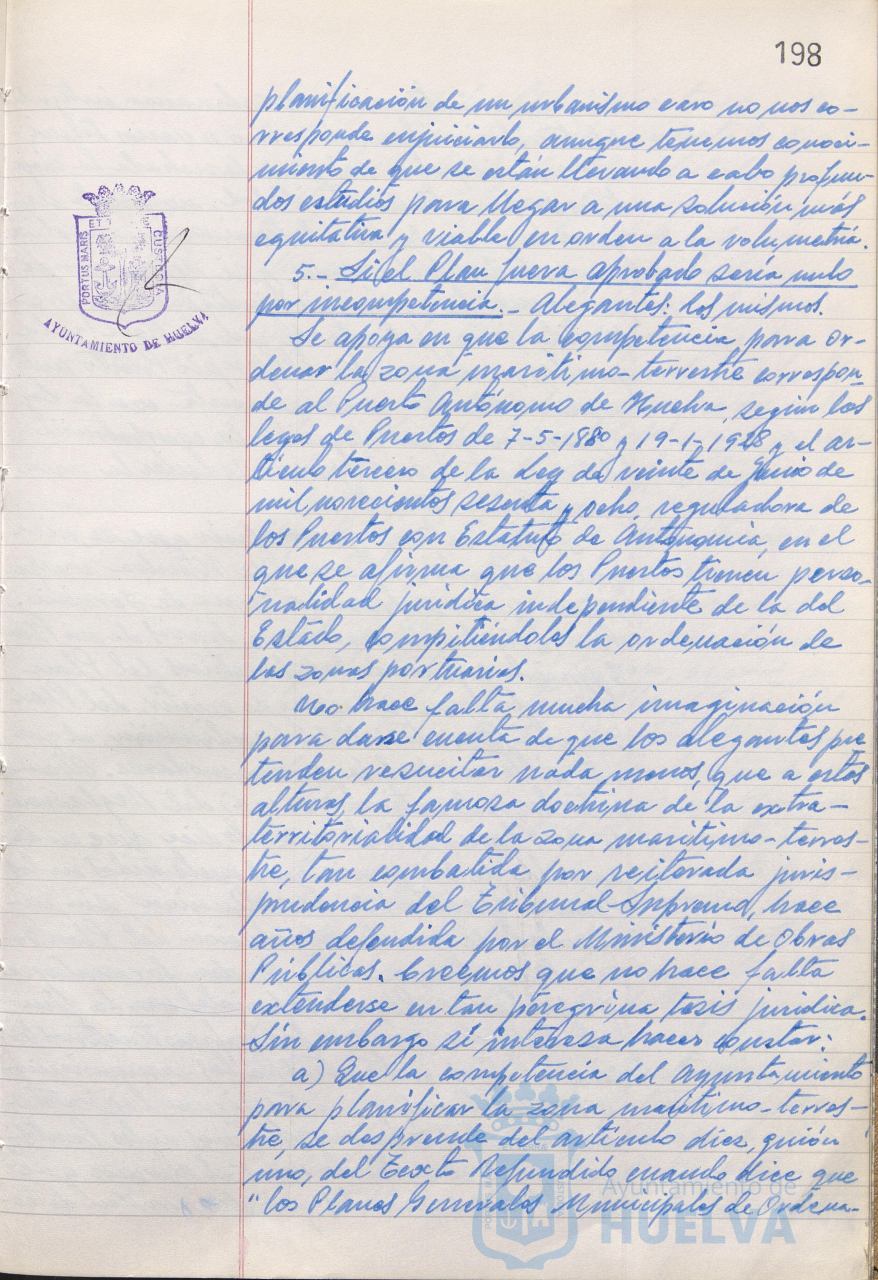 198
planificación de un urbanismo caro no nos co-
rresponde enjuiciarlo, aunque tenemos conoci-
miento de que se están llevando a cabo profun-
dos estudios para llegar a una solución más
equitativa y viable en orden a la volumetría.
5.- Si el Plan fuera aprobado sería nulo
por incompetencia.- Alegantes: los mismos.
Se apoya en que la competencia para or-
denar la zona marítimo-terrestre correspon-
de al Puerto Autónomo de Huelva, según las
leyes de Puertos de 7-5-1880 y 19-1-1928 y el ar-
tículo tercero de la Ley de veinte de Junio de
mil novecientos sesenta y ocho, reguladora de
los Puertos con Estatuto de Autonomía, en el
que se afirma que los Puertos tienen perso-
nalidad jurídica independiente de la del
Estado, compitiéndoles la ordenación de
las zonas portuarias.
No hace falta mucha imaginación
para darse cuenta de que los alegantes pre
tenden resucitar nada menos, que a estas
alturas, la famosa doctrina de la extra-
territorialidad de la zona marítimo-terres-
tre, tan combatida por reiterada juris-
prudencia del Tribunal Supremo, hace
años defendida por el Ministerio de Obras
Públicas. Creemos que no hace falta
extenderse en tan peregrina tesis jurídica.
Sin embargo sí interesa hacer constar:
a) Que la competencia del Ayuntamiento
para planificar la zona marítimo-terres-
tre, se desprende del artículo diez, guión
uno, del Texto Refundido cuando dice que
"los Planes Generales Municipales de Ordena-
PORTUS MARIS CUSTODIA
AYUNTAMIENTO DE HUELVA
Ayuntamiento de
HUELVA